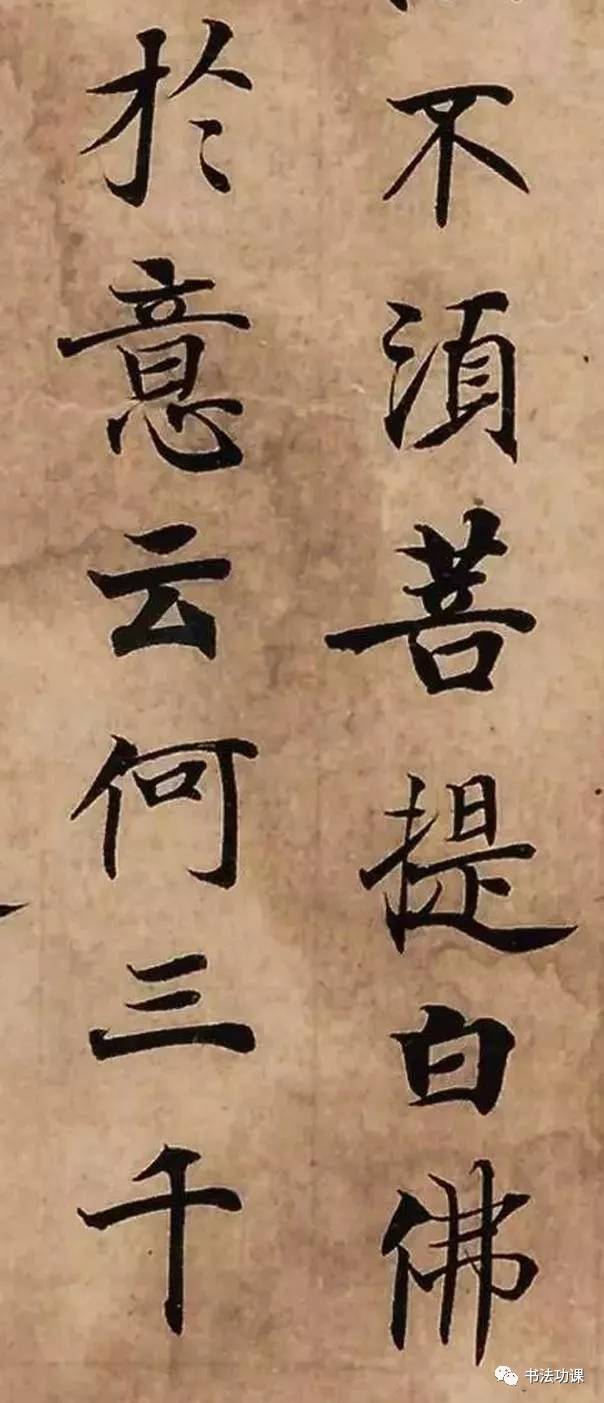 不須菩提白佛
於意云何三千
书法功课